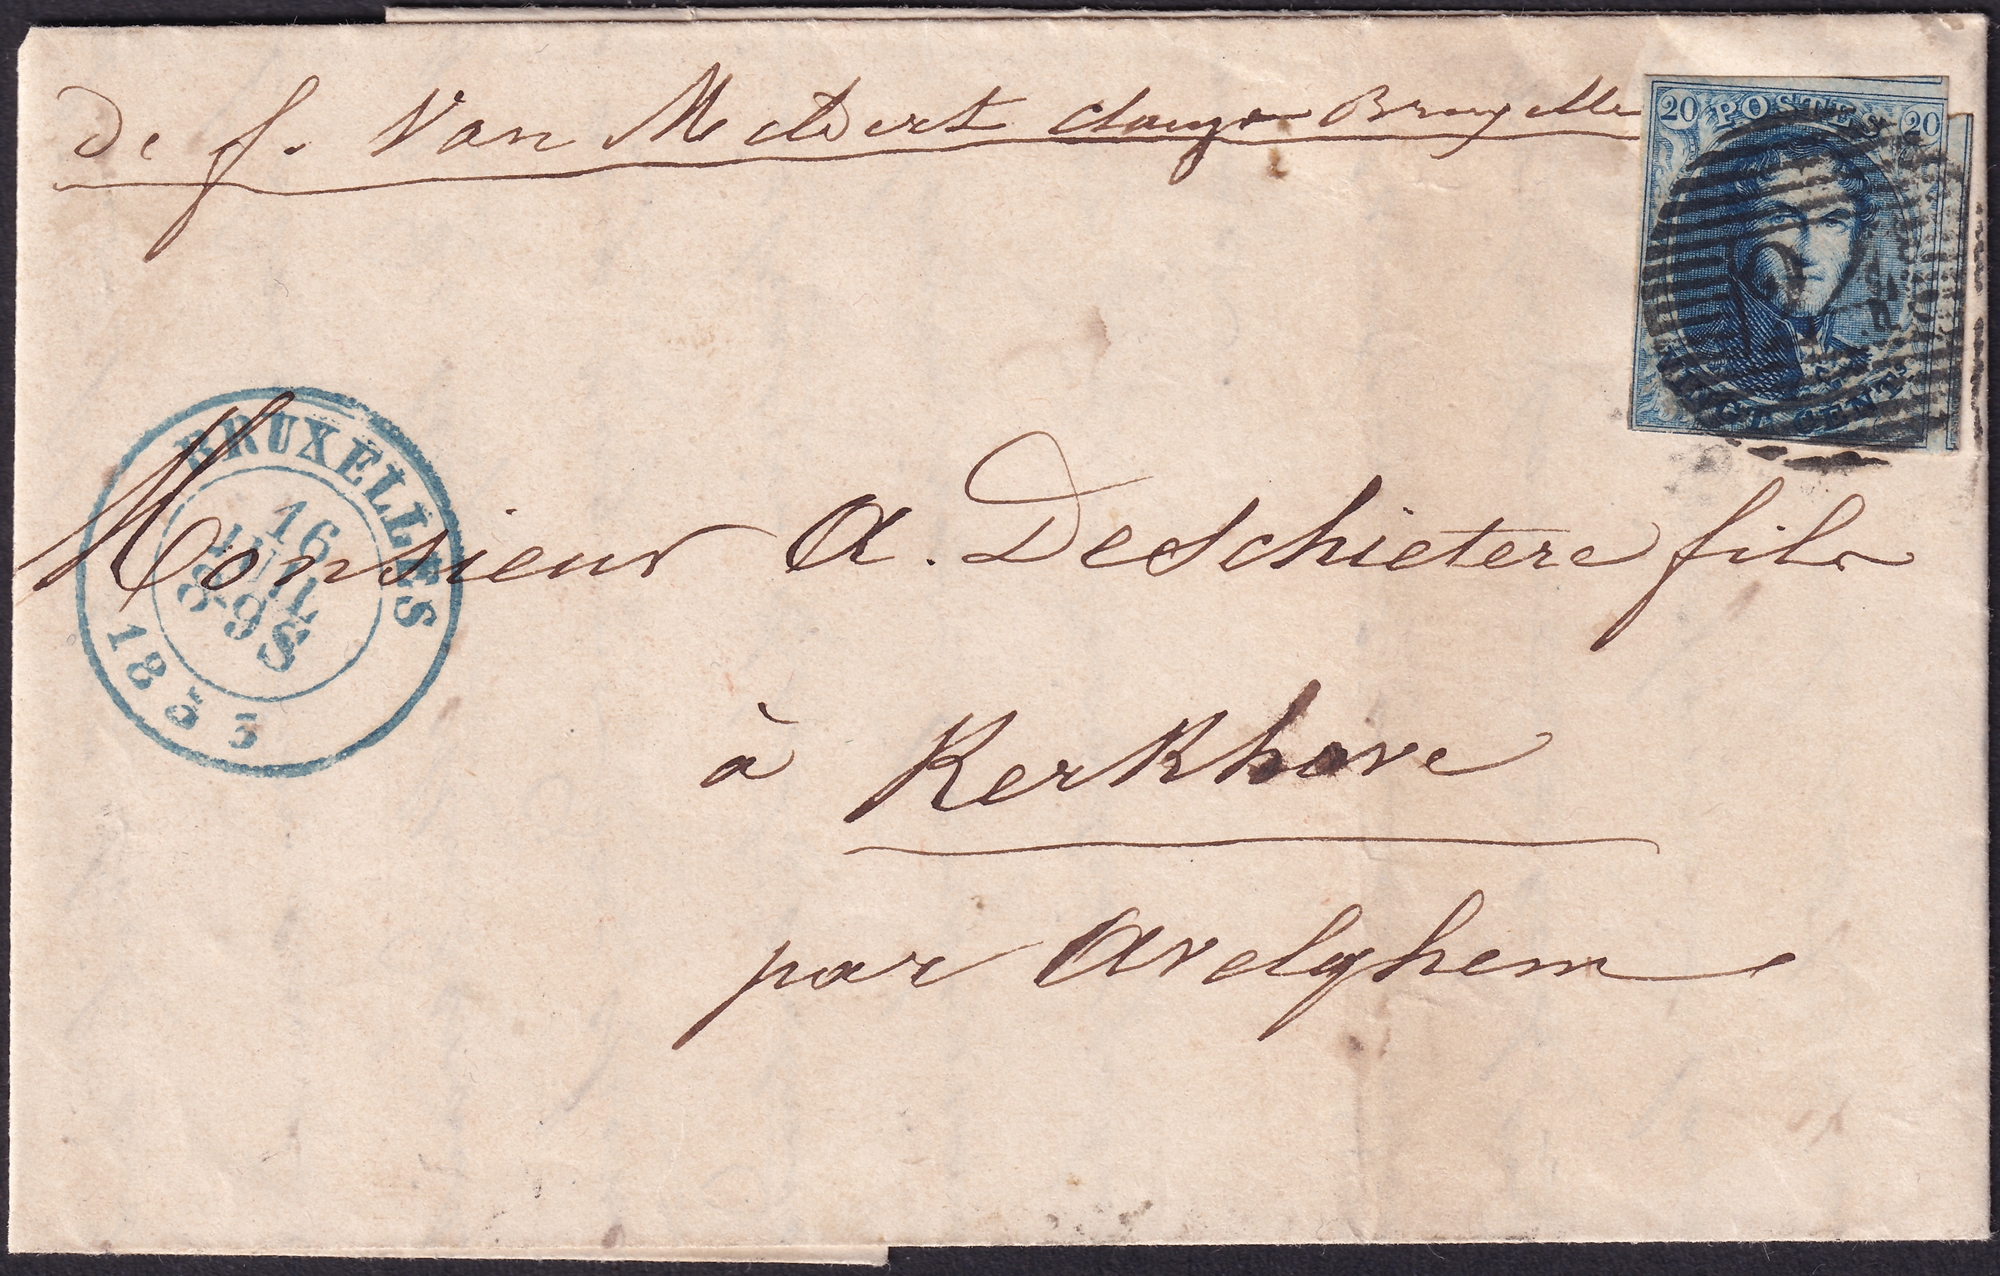 de f. Van Meldert Bruxelle
20 POSTES 20
VINGT CENTS
BRUXELLES
16
JUIL
8-9S
1855
Monsieur A. Deschietere fils
à Kerkhove
par Avelghem